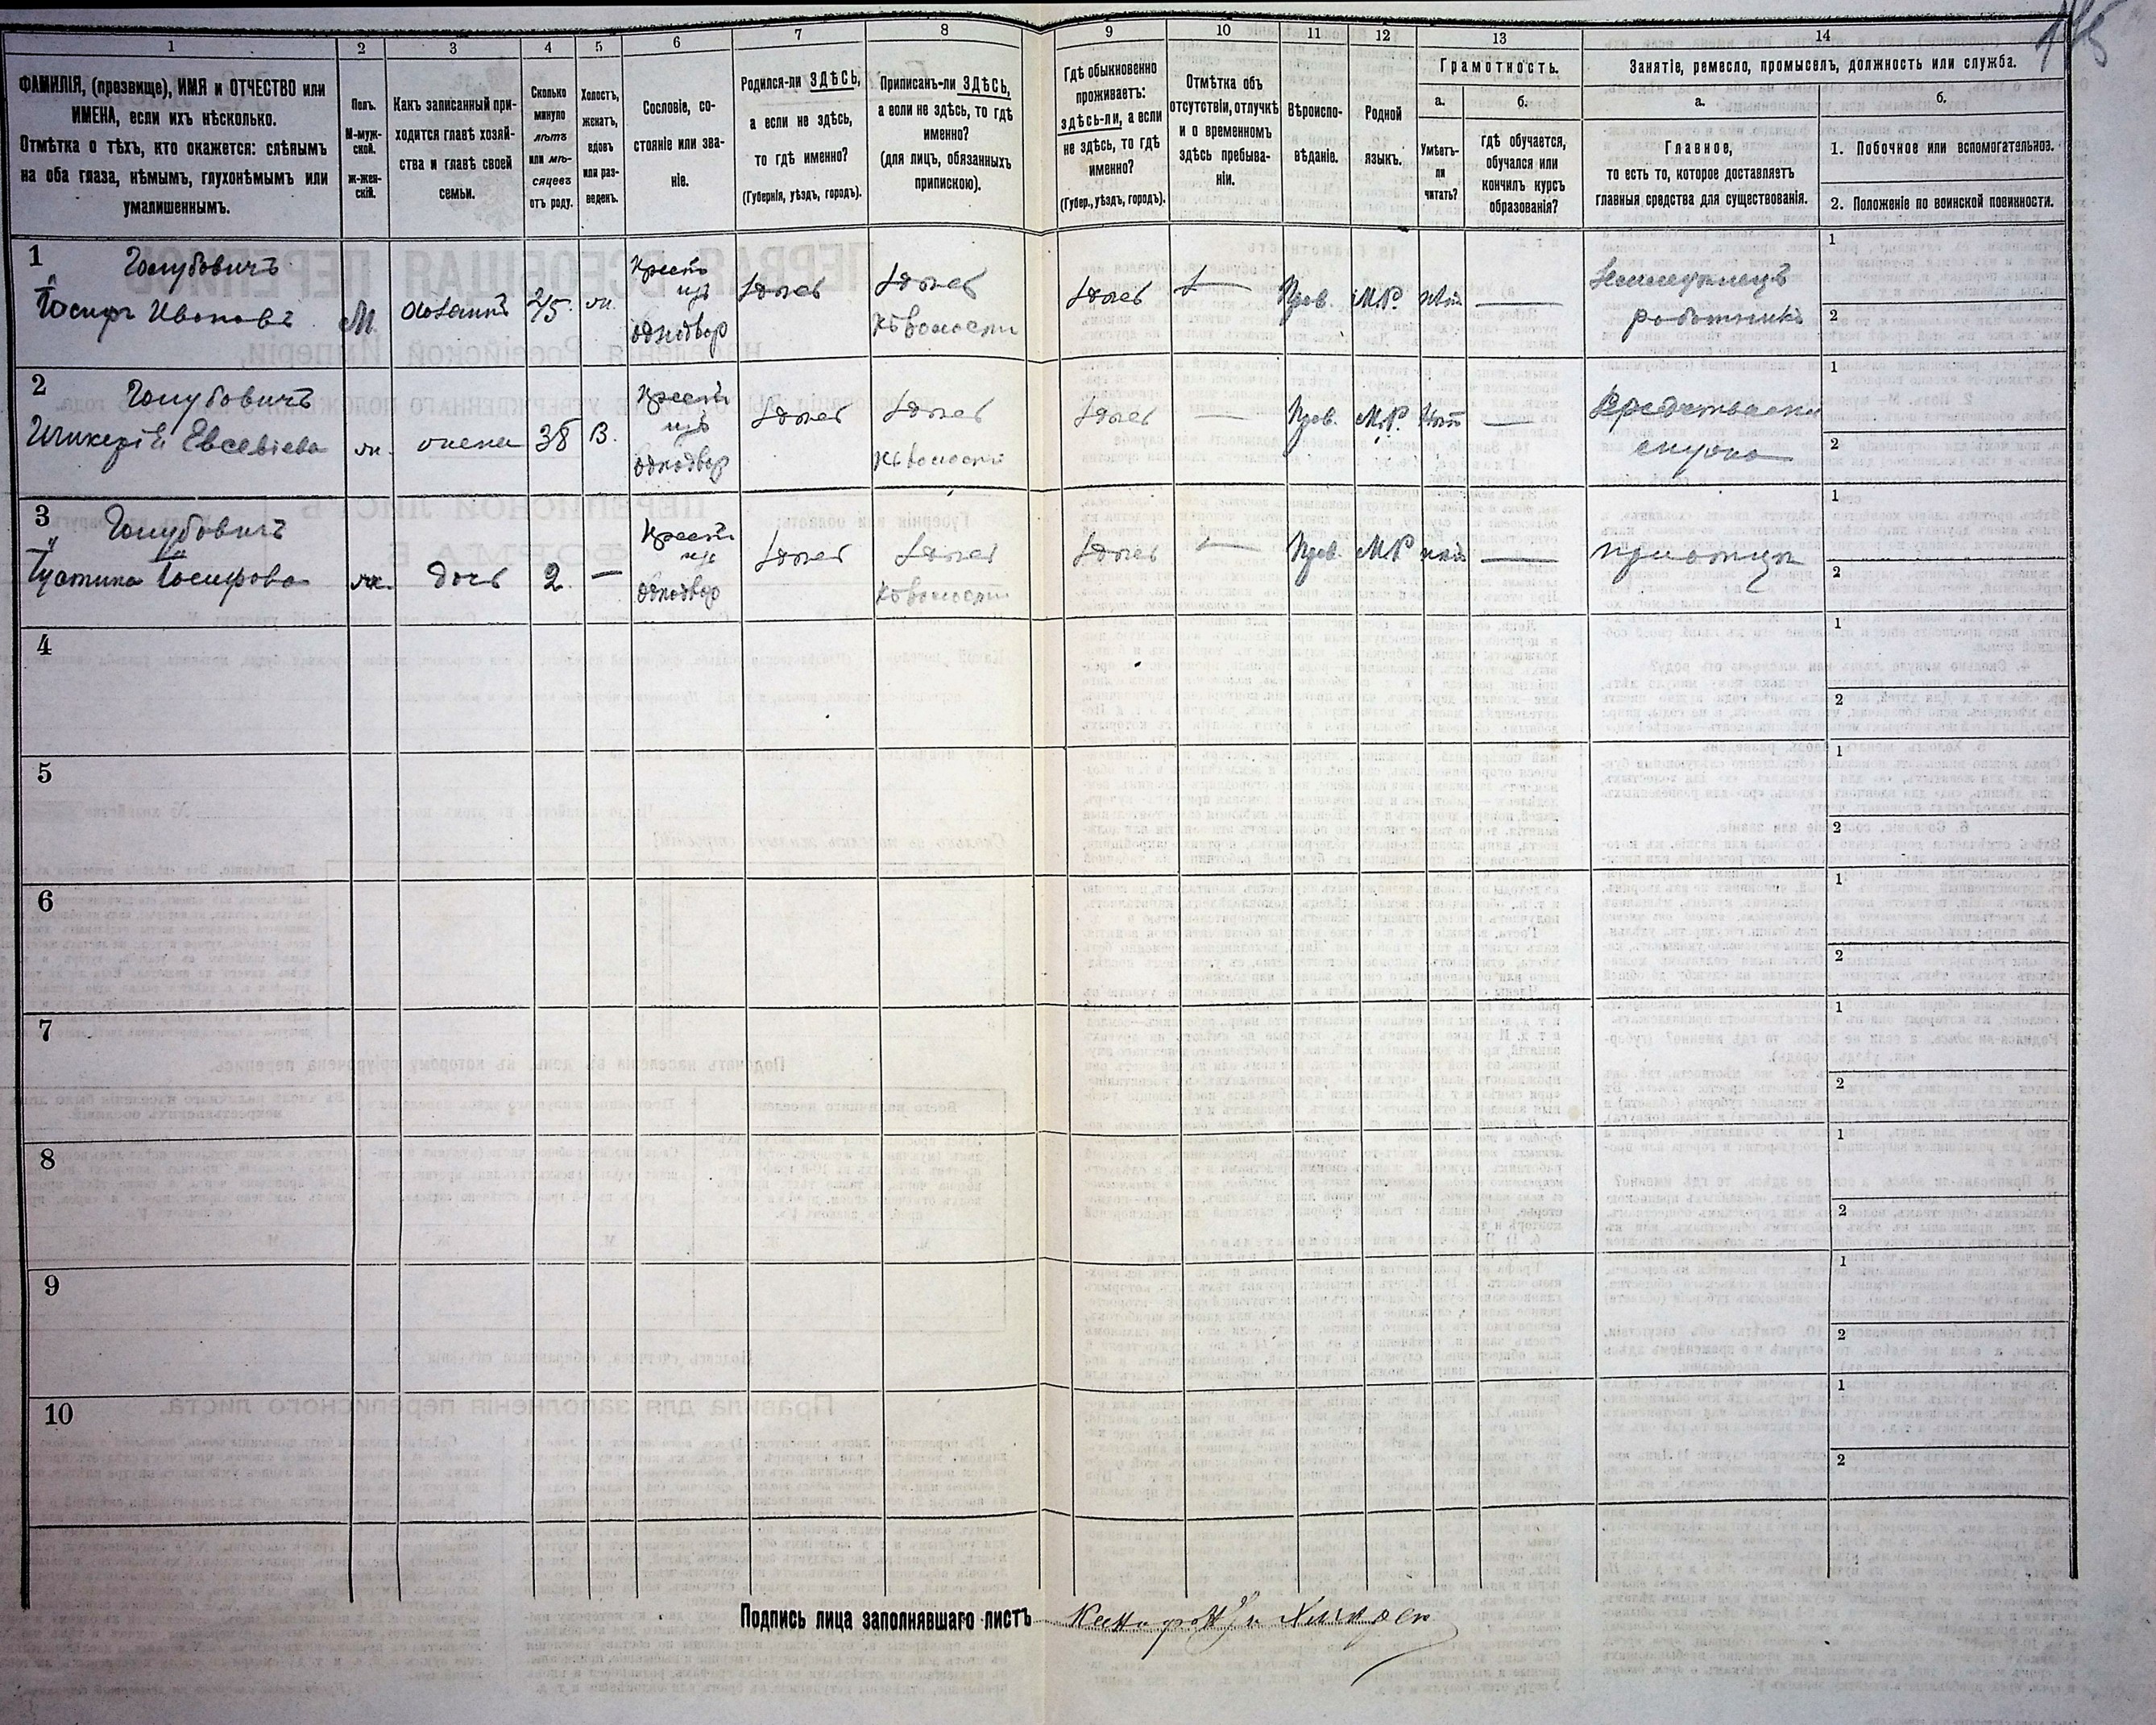 1 2 3 4 5 6 7 8 9 10 11 12 13 14
ФАМИЛІЯ, (прозвище), ИМЯ и ОТЧЕСТВО или
ИМЕНА, если ихъ нѣсколько.
Отмѣтка о тѣхъ, кто окажется: слѣпымъ
на оба глаза, нѣмымъ, глухонѣмымъ или
умалишеннымъ.
Полъ.
М-муж-
ской.
ж-жен-
скій.
Какъ записанный при-
ходится главѣ хозяй-
ства и главѣ своей
семьи.
Сколько
минуло
лѣтъ
или мѣ-
сяцевъ
отъ роду.
Холостъ,
женатъ,
вдовъ
или раз-
веденъ.
Сословіе, со-
стояніе или зва-
ніе.
Родился-ли ЗДѢСЬ,
а если не здѣсь,
то гдѣ именно?
(Губернія, уѣздъ, городъ).
Приписанъ-ли ЗДѢСЬ,
а если не здѣсь, то гдѣ
именно?
(для лицъ, обязанныхъ
припискою).
Гдѣ обыкновенно
проживаетъ:
здѣсь-ли, а если
не здѣсь, то гдѣ
именно?
(Губер., уѣздъ, городъ).
Отмѣтка объ
отсутствіи, отлучкѣ
и о временномъ
здѣсь пребыва-
ніи.
Вѣроиспо-
вѣданіе.
Родной
языкъ.
Грамотность.
а.
Умѣетъ-
ли
читать?
б.
гдѣ обучается,
обучался или
кончилъ курсъ
образованія?
Занятіе, ремесло, промыселъ, должность или служба.
а.
Главное,
то есть то, которое доставляетъ
главныя средства для существованія.
б.
1. Побочное или вспомогательное.
2. Положеніе по воинской повинности.
1
Голубовичъ
Іосифъ Ивановъ
М.
хозяинъ
45.
ж.
Крестъ
изъ
однодвор
здѣсь
здѣсь
къ волости
здѣсь
Прав.
М.Р.
нѣтъ
Земледѣлецъ
работникъ
1
2
2
Голубовичъ
Гликерія Евсевіева
ж.
жена
38
З.
Крестъ
изъ
однодвор
здѣсь
здѣсь
къ волости
здѣсь
Прав.
М.Р.
нѣтъ
1
2
3
Голубовичъ
Іустина Іосифова
ж.
дочь
2.
Крестъ
изъ
однодвор
здѣсь
здѣсь
къ волости
здѣсь
Прав.
М.Р.
нѣтъ
при отцѣ
1
2
4
1
2
5
1
2
6
1
2
7
1
2
8
1
2
9
1
2
10
1
2
Подпись лица заполнявшаго листъ